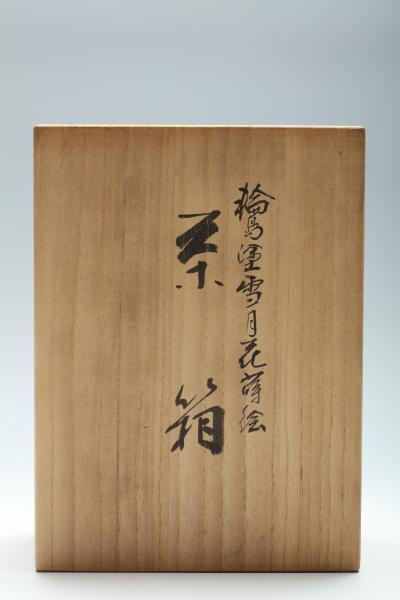 輪島塗雪月花蒔絵
茶箱